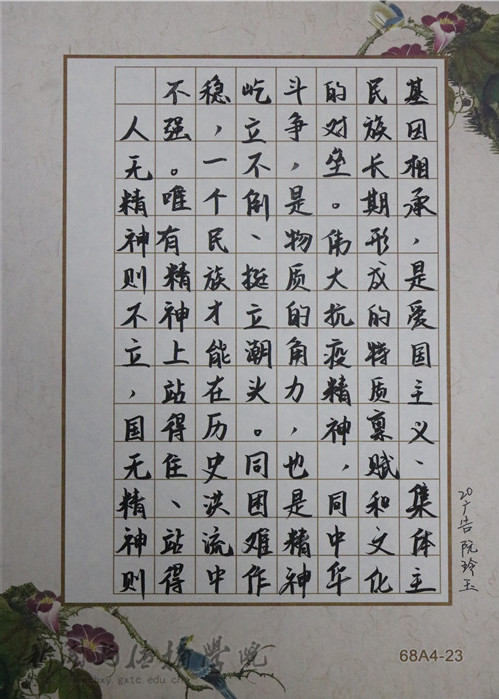 人无精神则不立，国无精神则
不强。唯有精神上站得住、站得
稳，一个民族才能在历史洪流中
屹立不倒、挺立潮头。同困难作
斗争，是物质的角力，也是精神
的对垒。伟大抗疫精神，同中华
民族长期形成的特质禀赋和文化
基因相承，是爱国主义、集体主
20广告 阮玲玉
68A4-23
传播学院